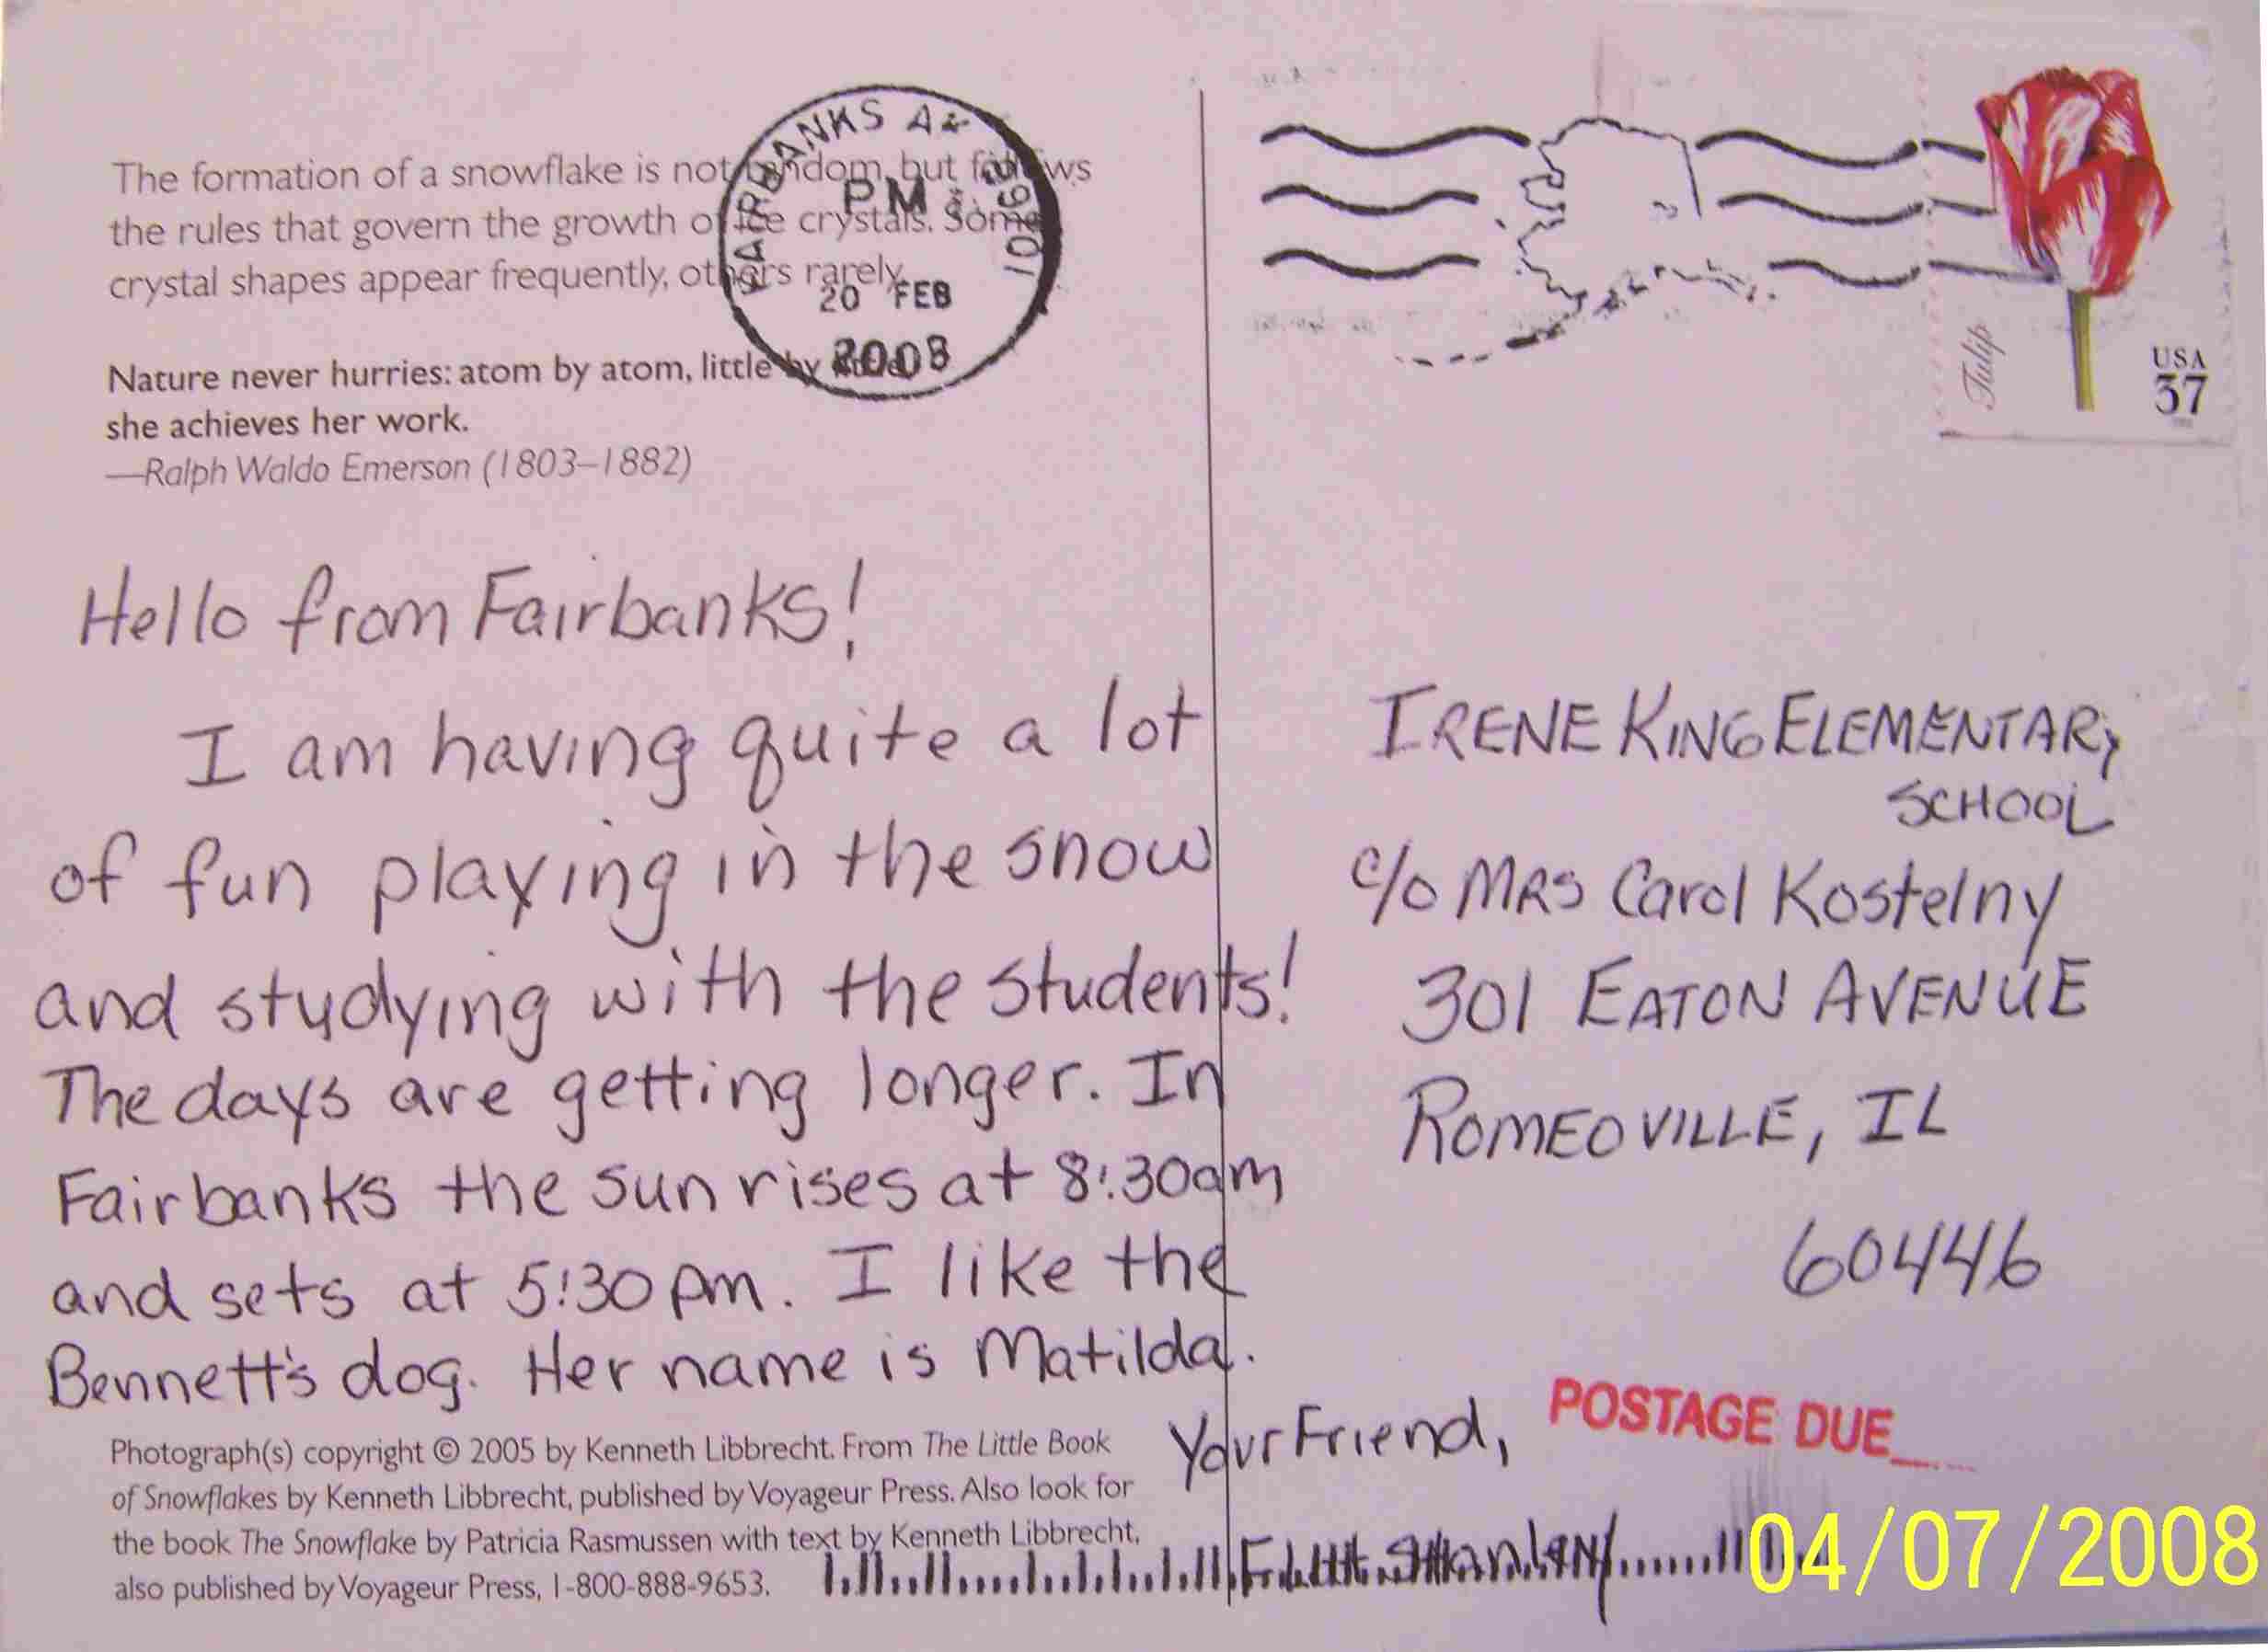 The formation of a snowflake is not random, but follows
the rules that govern the growth of ice crystals. Some
crystal shapes appear frequently, others rarely.
Nature never hurries: atom by atom, little by little
she achieves her work.
—Ralph Waldo Emerson (1803–1882)
FAIRBANKS AK
PM
20 FEB
2008
Tulip
USA
37
Hello from Fairbanks!
I am having quite a lot
of fun playing in the snow
and studying with the students!
The days are getting longer. In
Fairbanks the sun rises at 8:30am
and sets at 5:30 pm. I like the
Bennett's dog. Her name is Matilda.
Your Friend,
Flat Stanley
IRENE KING ELEMENTARY
SCHOOL
c/o MRS Carol Kostelny
301 EATON AVENUE
ROMEOVILLE, IL
60446
POSTAGE DUE
Photograph(s) copyright © 2005 by Kenneth Libbrecht. From The Little Book
of Snowflakes by Kenneth Libbrecht, published by Voyageur Press. Also look for
the book The Snowflake by Patricia Rasmussen with text by Kenneth Libbrecht,
also published by Voyageur Press, 1-800-888-9653.
04/07/2008